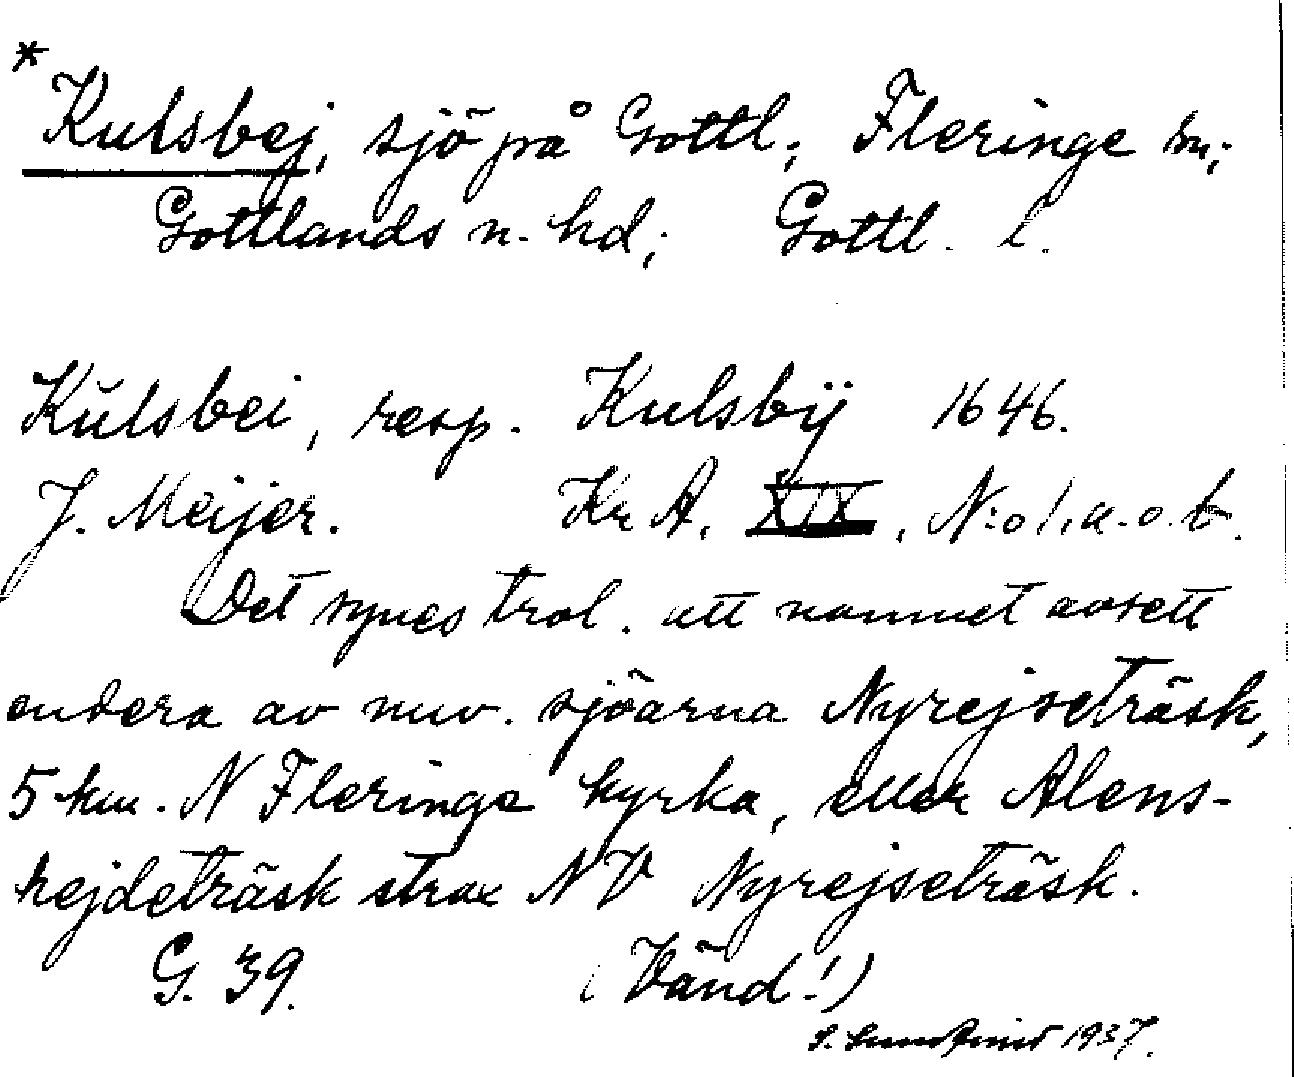 * Kulsbej, sjö på Gottl.; Fleringe sn;
Gottlands n. hd; Gottl. l.
Kŭlsbei, resp. Kulsbÿ 1646.
J. Meijer. Kr A. XIX, N:o 1, a. o. b.
Det synes trol. att namnet avsett
endera av nuv. sjöarna Nyrejseträsk,
5 km. N Fleringe kyrka, eller Alens-
hejdeträsk strax NV Nyrejseträsk.
G. 39. (Vänd!)
1937.